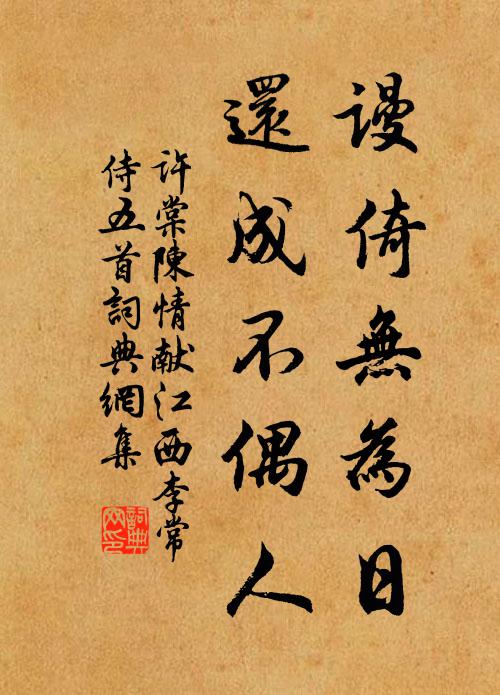 謾倚無為日
還成不偶人
許棠陳情献江西李常
侍五首詞典網集
詞典網印